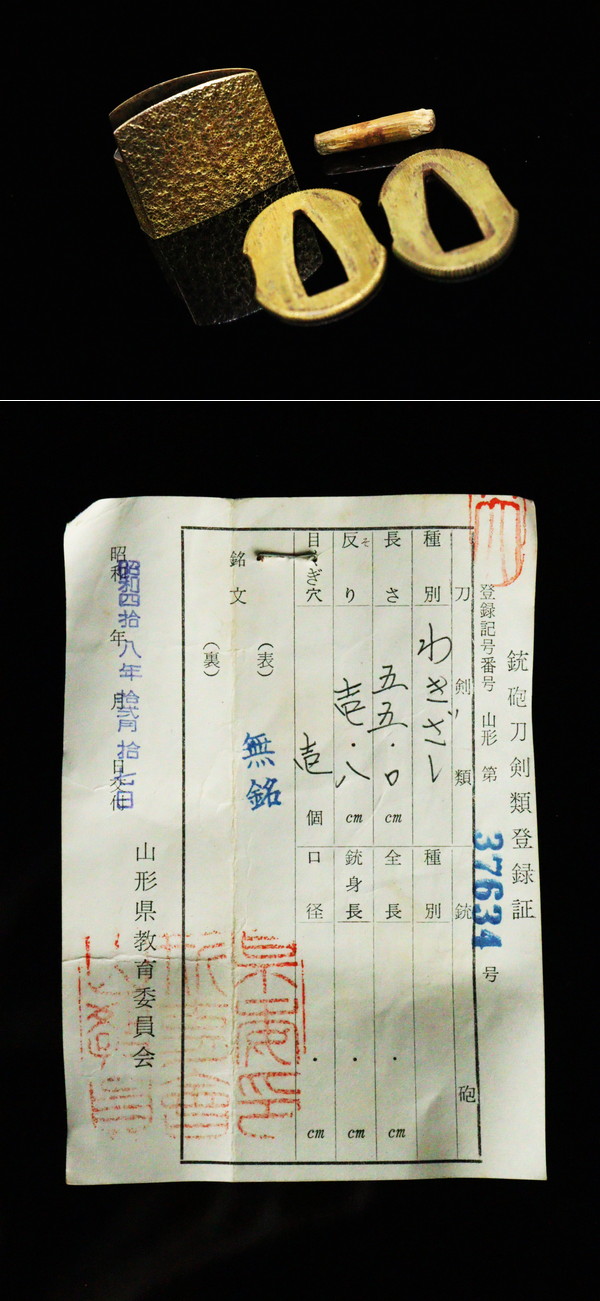 銃砲刀剣類登録証
登録記号番号 山形 第 37634 号
刀剣類
種別 わきざし
長さ 五五.〇 cm
反り 壱.八 cm
目くぎ穴 壱 個
銘文
(表) 無銘
(裏)
銃砲
種別
全長 . cm
銃身長 . cm
口径 . cm
昭和 年 月 日交付
昭和四拾八年拾弐月拾七日
山形県教育委員会